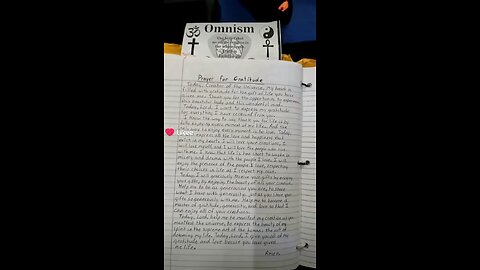 Omnism
Prayer for Gratitude
Today, Creator of the Universe, My heart is
filled with gratitude for the gift of life you have
given me. Thank you for the opportunity to experience
this beautiful body and this wonderful mind.
Today, Lord, I want to express my gratitude
for everything I have received from you.
I know the way to say thank you for life is by
fully enjoying every moment of my life. And the
only way to enjoy every moment is to love. Today
I will express all the love and happiness that
exist in my heart. I will love your creations, I
will love myself, and I will love the people who live
with me. I know that life is too short to waste in
misery and drama with the people I love. I will
enjoy the presence of the people I love, respecting
their choices in life as I respect my own.
Today, I will graciously receive your gifts by enjoying
your gifts, by enjoying the beauty of all your creations.
Help me to be as generous as you are, to share
what I have with generosity, just as you share your
gifts so generously with me. Help me to become a
master of gratitude, generosity, and love so that I
can enjoy all of your creations.
Today, Lord, help me to manifest my creation as you
manifest the universe, to express the beauty of my
spirit in the supreme art of the human: the art of
dreaming my life. Today, Lord, I give you all of my
gratitude and love because you have given
me life.
Amen.